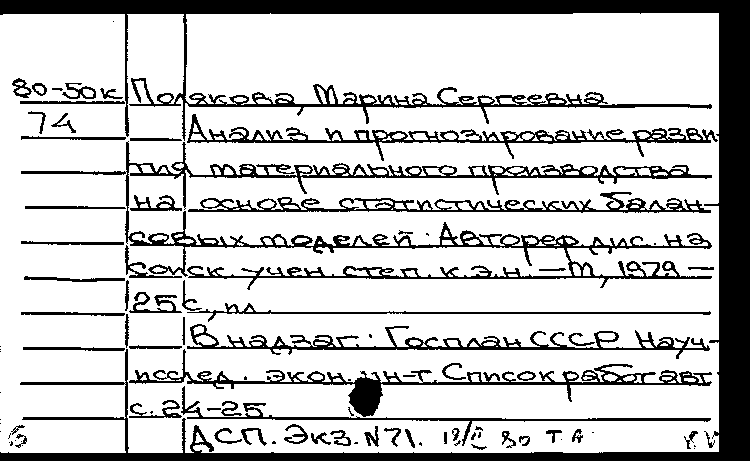 80-50к Полякова, Марина Сергеевна
74 Анализ и прогнозирование разви-
тия материального производства
на основе статистических балан-
совых моделей: Автореф. дис. на
соиск. учен. степ. к.э.н. — М, 1979 —
25 с., ил.
В надзаг.: Госплан СССР. Науч-
исслед. экон. ин-т. Список работ авт
с. 24-25.
ДСП. Экз. N71. 80 Т А